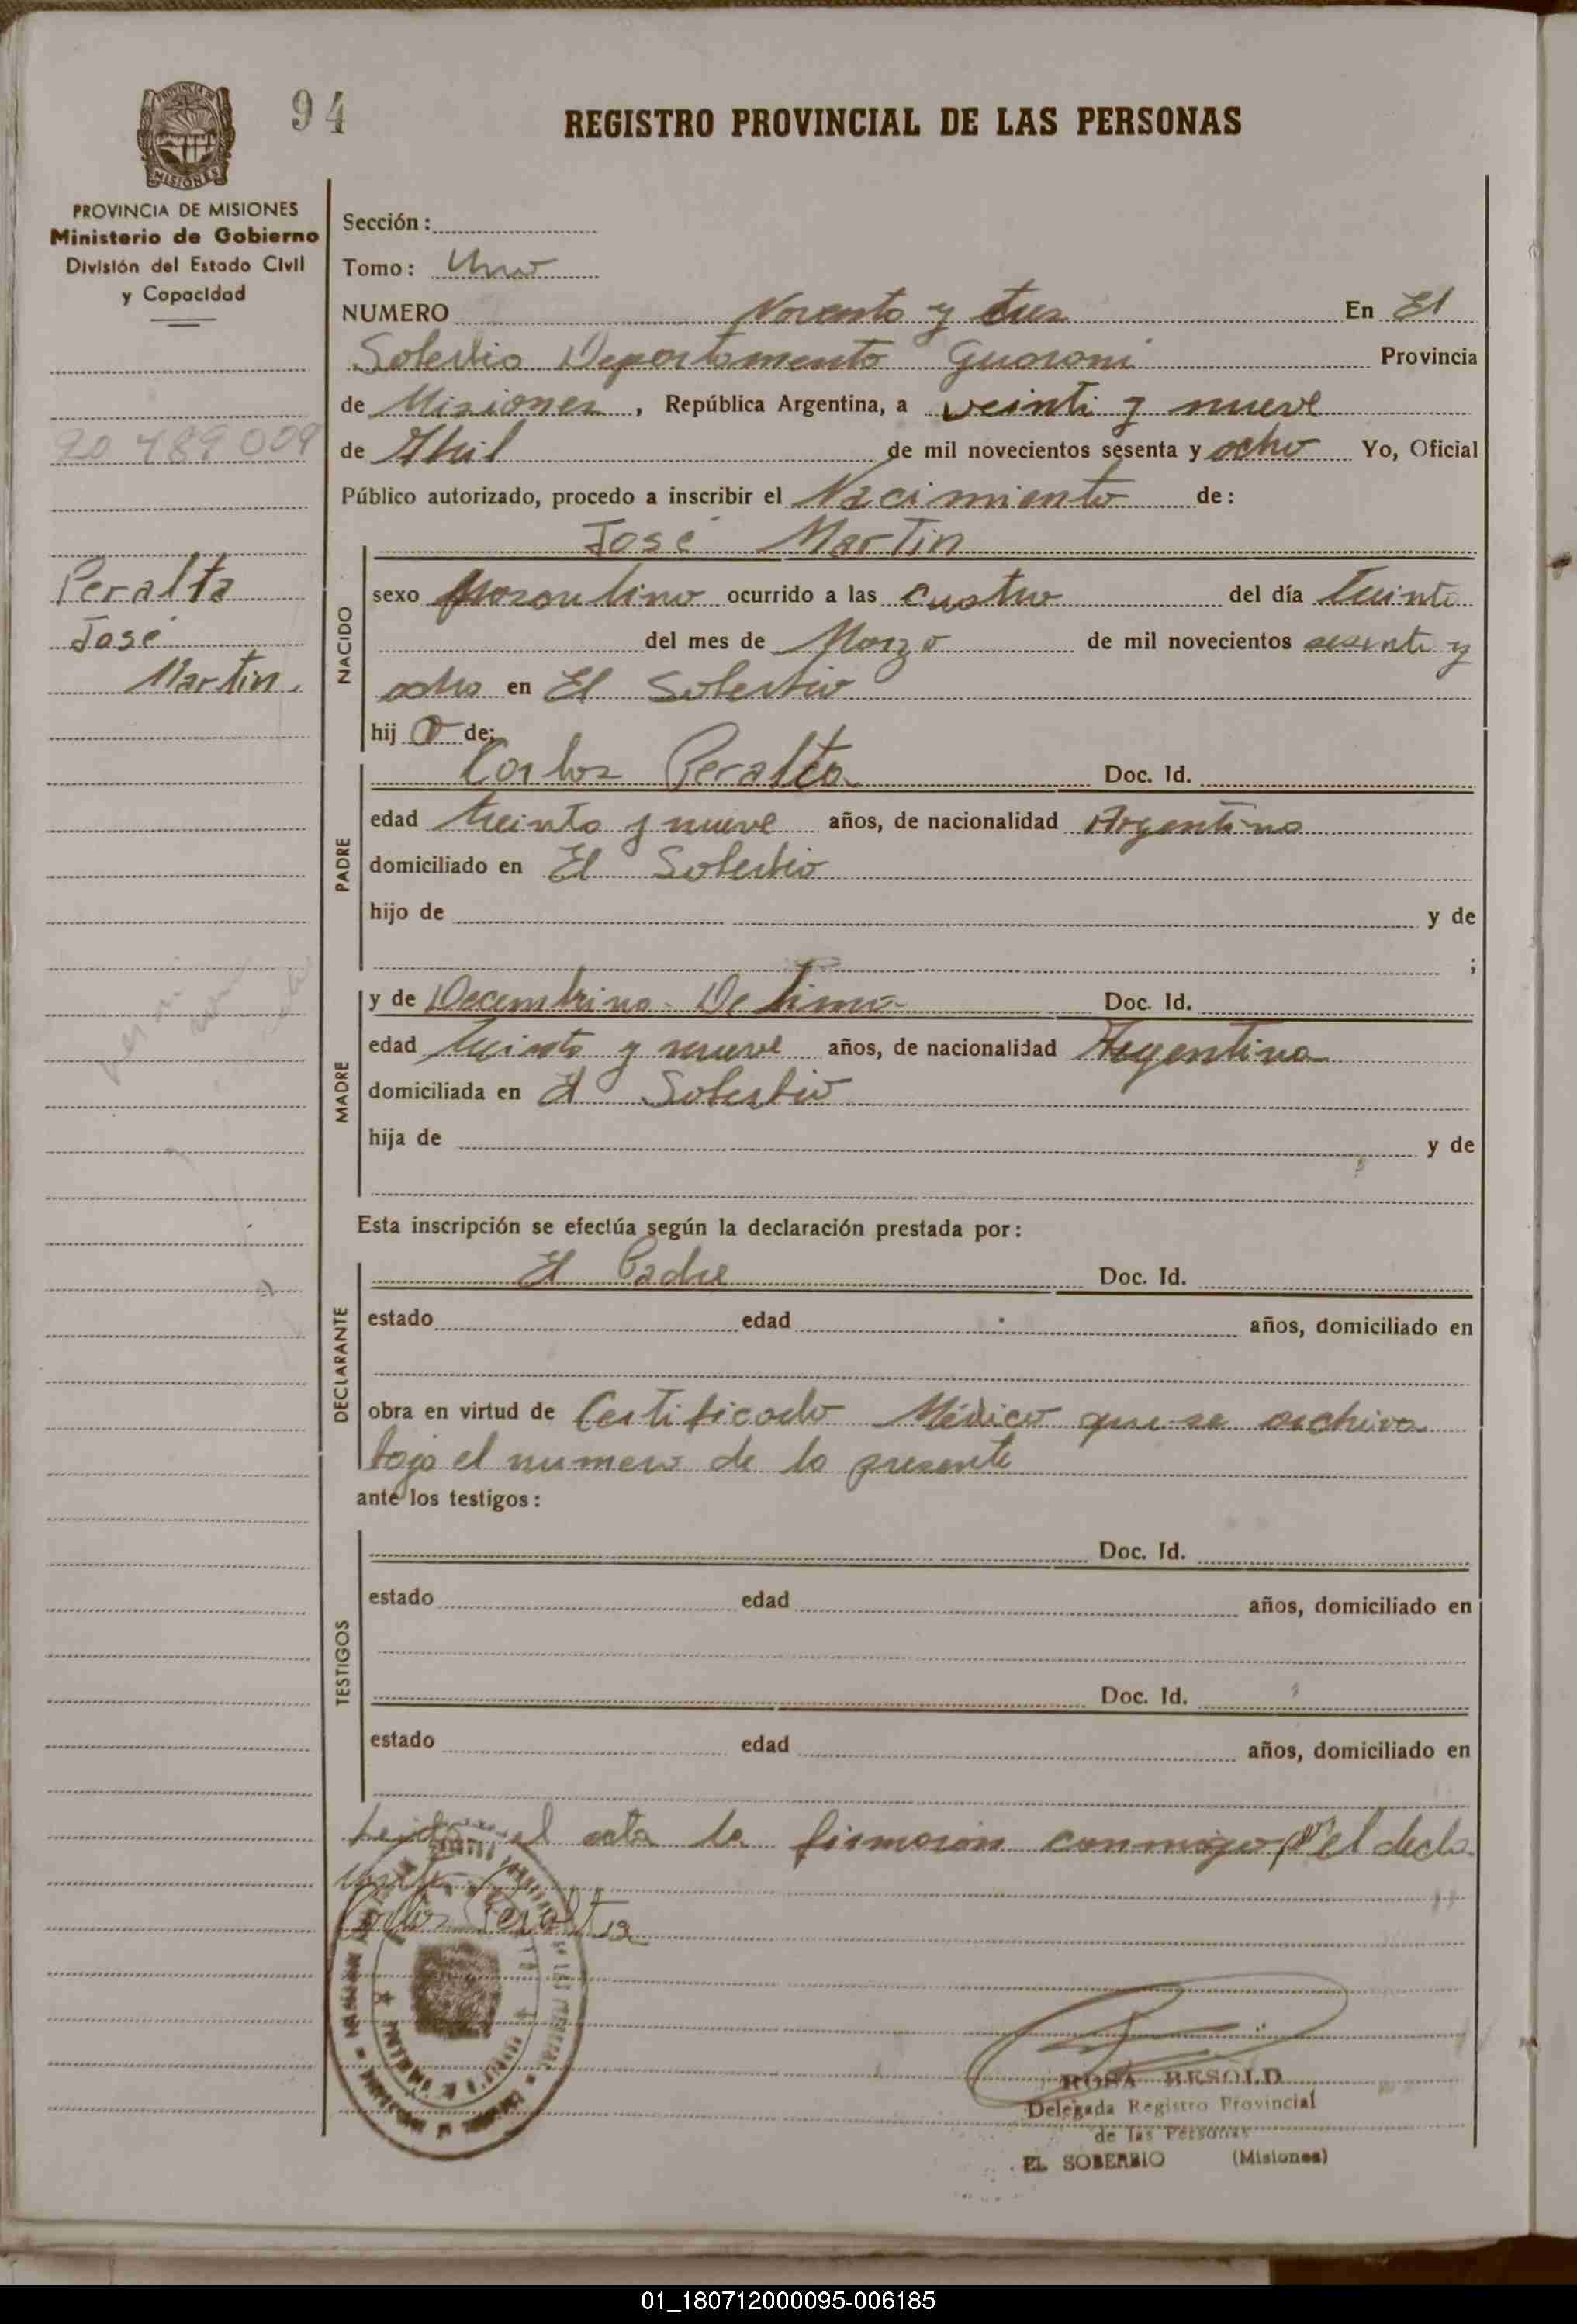 94
REGISTRO PROVINCIAL DE LAS PERSONAS
PROVINCIA DE MISIONES
Ministerio de Gobierno
División del Estado Civil
y Capacidad
Sección:
Tomo: Uno
NUMERO Noventa y tres En El
Soberbio Departamento Guarani Provincia
de Misiones, República Argentina, a veinti y nueve
de Abril de mil novecientos sesenta y ocho Yo, Oficial
Público autorizado, procedo a inscribir el Nacimiento de:
20 489 009
Peralta
José
Martin.
NACIDO
José Martin
sexo Masculino ocurrido a las cuatro del día treinta
del mes de Marzo de mil novecientos sesenta y
ocho en El Soberbio
hijo de:
PADRE
Carlos Peralta Doc. Id.
edad treinta y nueve años, de nacionalidad Argentina
domiciliado en El Soberbio
hijo de y de
;
MADRE
y de Decembrina De Lima Doc. Id.
edad treinta y nueve años, de nacionalidad Argentina
domiciliada en El Soberbio
hija de y de
Esta inscripción se efectúa según la declaración prestada por:
DECLARANTE
El Padre Doc. Id.
estado edad años, domiciliado en
obra en virtud de Certificado Médico que se archiva
bajo el numero de la presente
ante los testigos:
TESTIGOS
Doc. Id.
estado edad años, domiciliado en
Doc. Id.
estado edad años, domiciliado en
Leida el acta la firmaron conmigo el decla
rante
Carlos Peralta
ROSA BESOLD
Delegada Registro Provincial
de las Personas
EL SOBERBIO (Misiones)
01_180712000095-006185